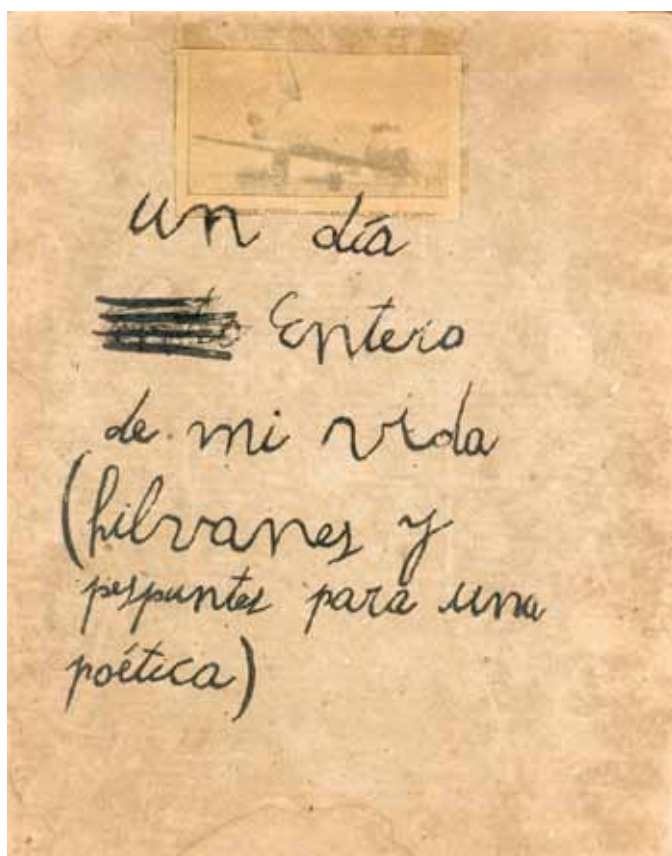 un día
Entero
de mi vida
(hilvanes y
pespuntes para una
poética)